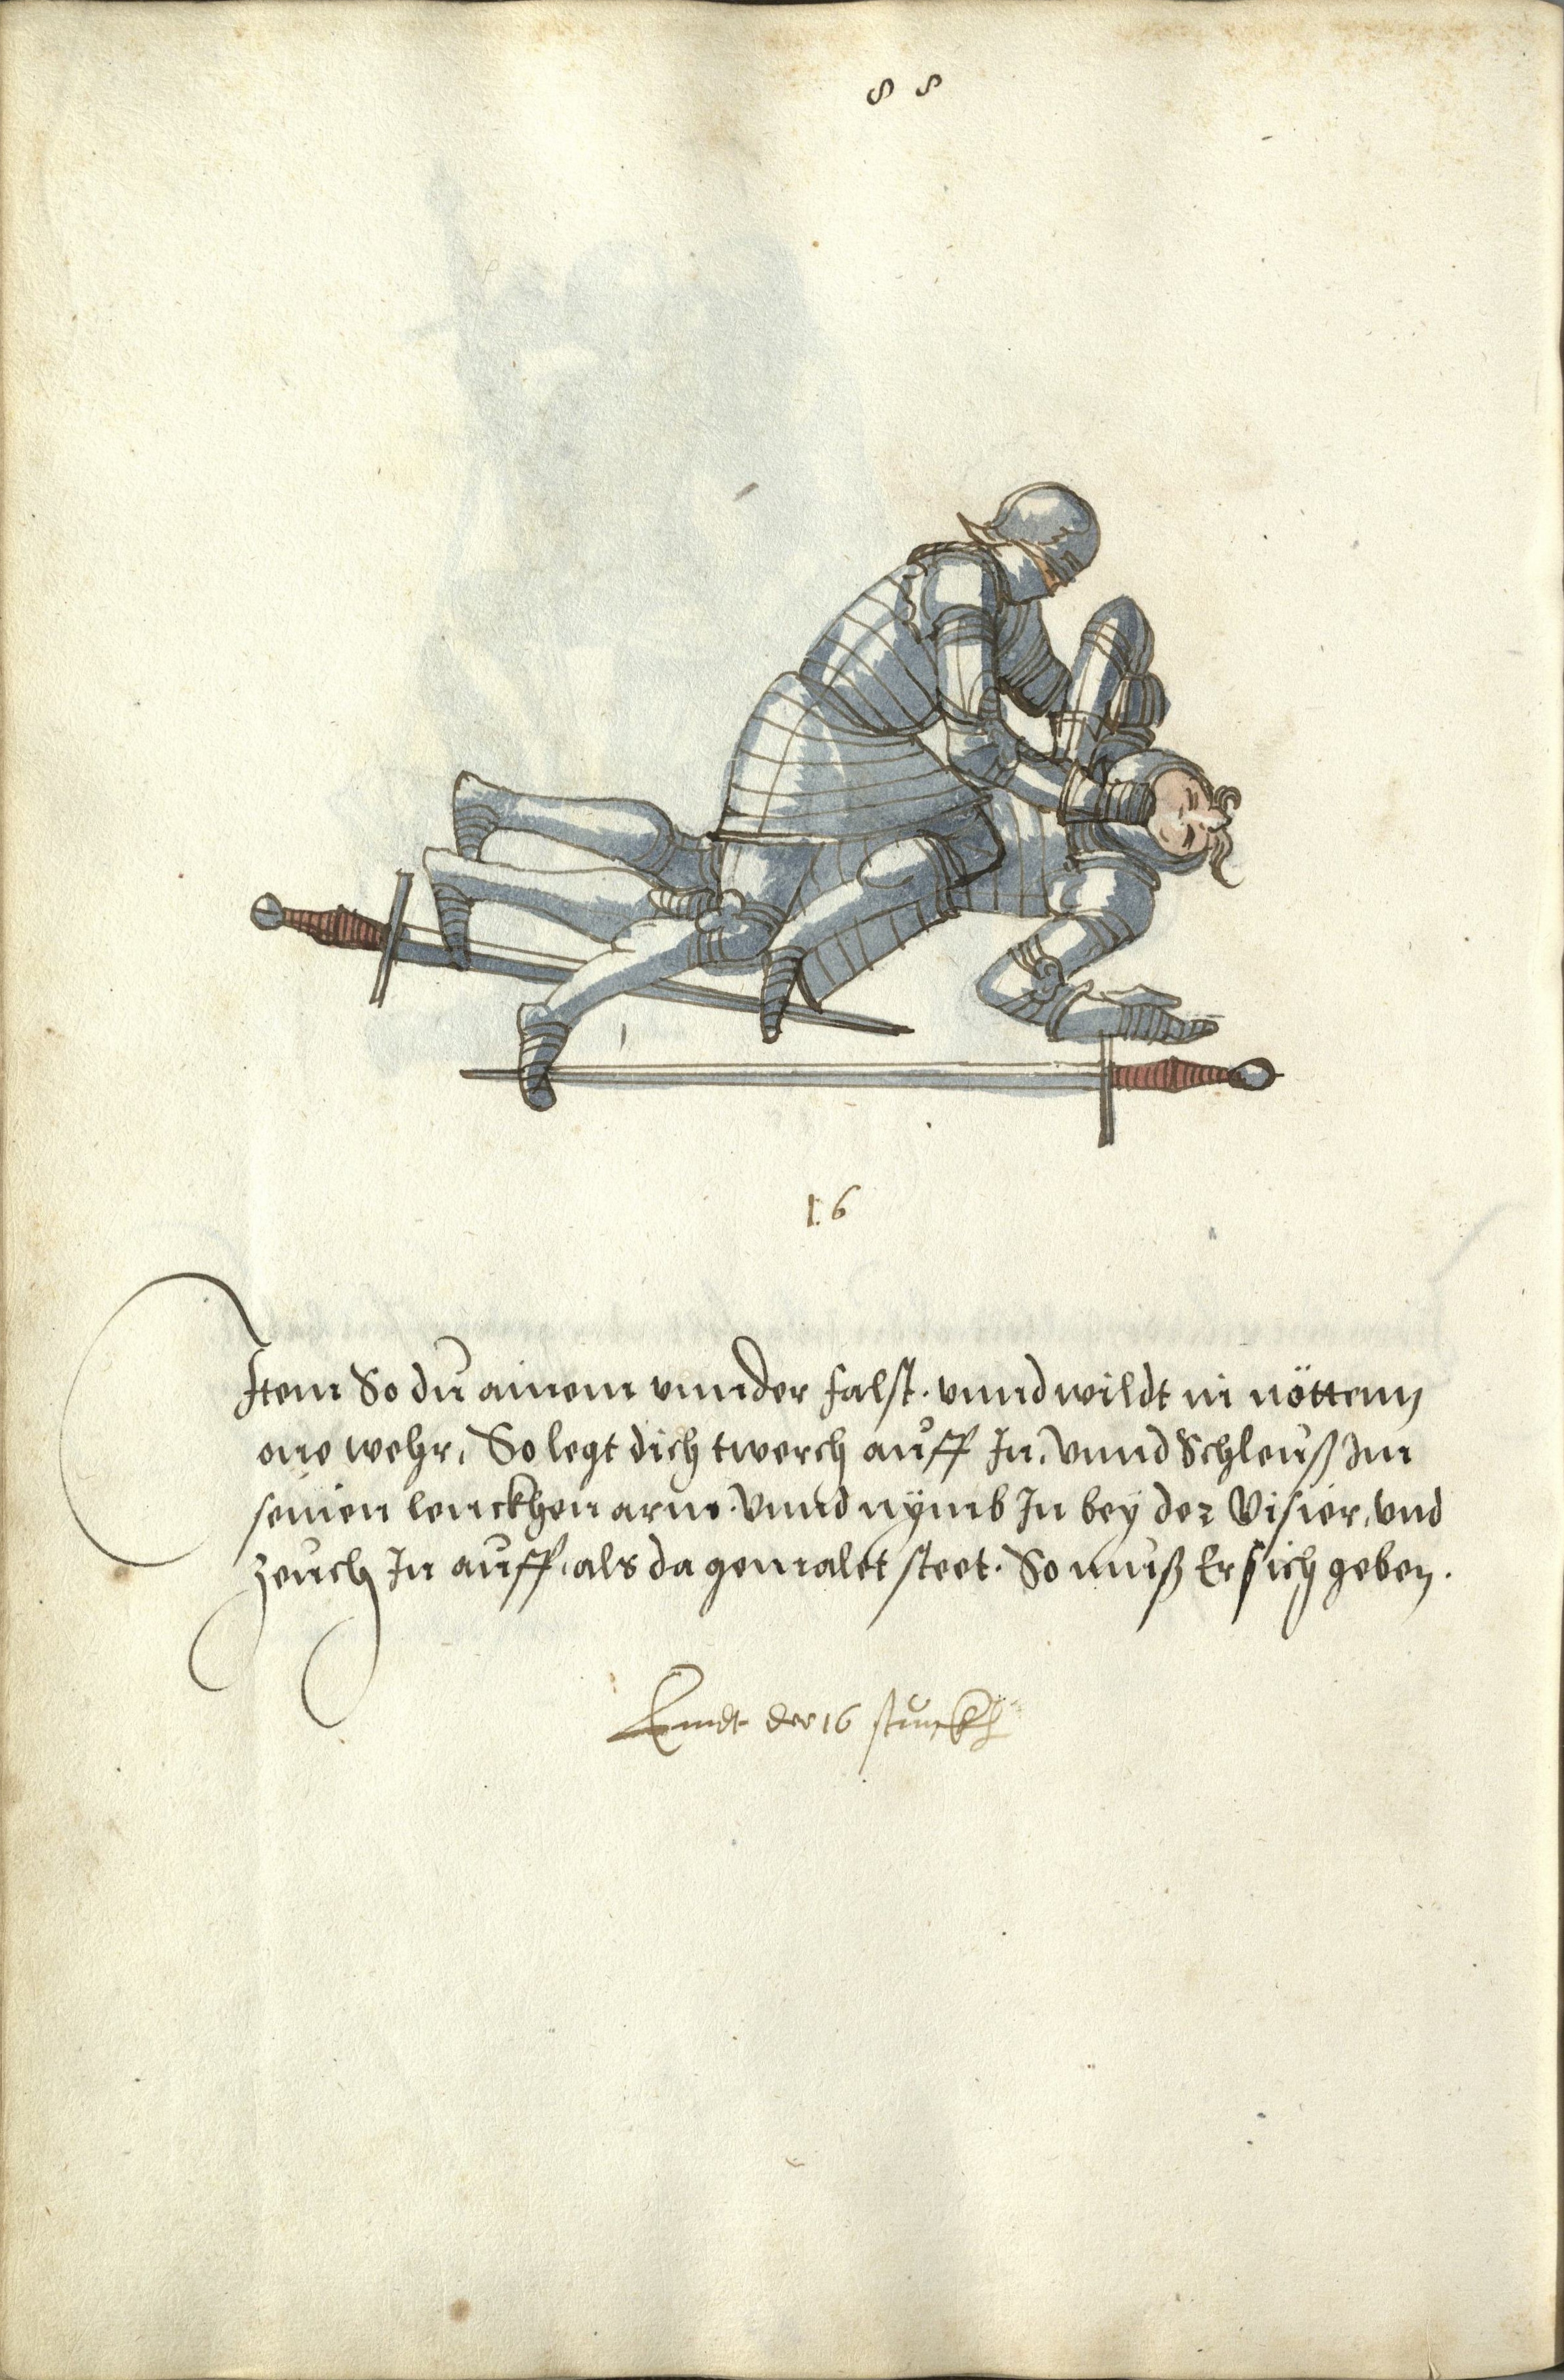 88
16
Item So du ainem vnnder falst. vnnd wildt in nöttenn
one wehr, So legt dich twerch auff In, vnnd Schleuß Im
seinen lenckhen arm. Vnnd nÿmb In beÿ der Visier, vnd
zeuch In auff, als da gemalet steet. So muß Er sich geben.
Enndt der 16 stuckh